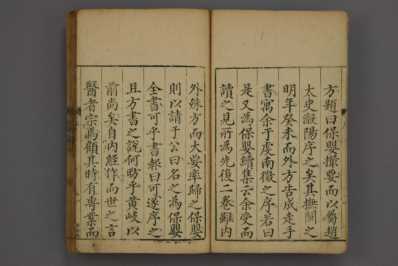 方題曰保嬰撮要而以屬趙
太史瀔陽序之矣其撫關之
明年癸未而外方告成走手
書寓余于虔南徵之序若曰
是又為保嬰續集云余受而
讀之見前為先後二卷雖內
外殊方而大要率歸之保嬰
則以請于公曰名之為保嬰
全書可乎書報曰可遂序之
且方書之說何昉乎黃岐以
前尚矣自內經作而世之言
醫者宗焉顧其時有專業而